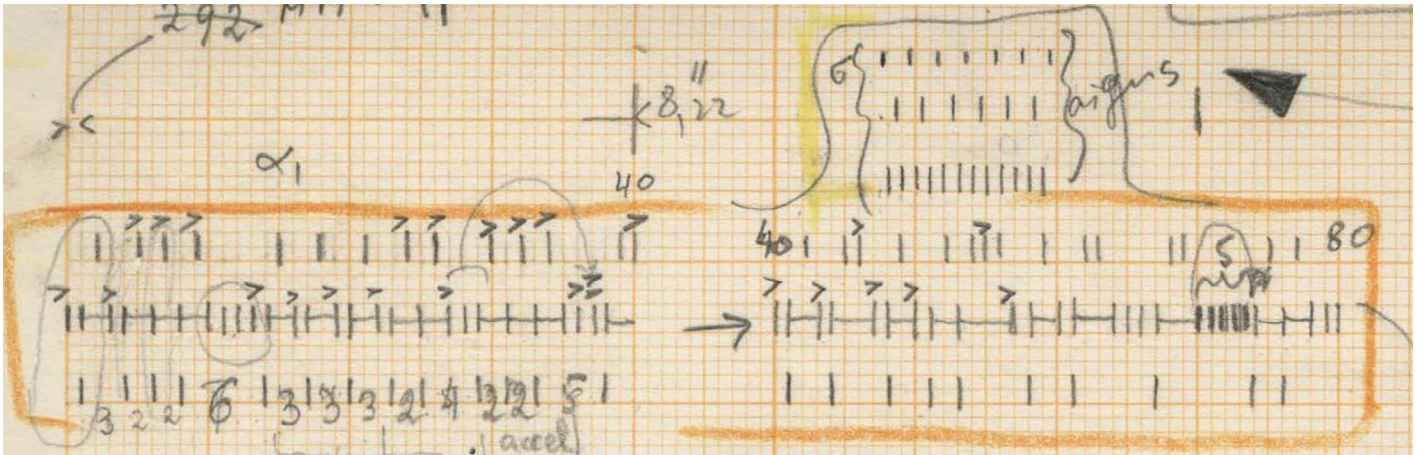 292
8,22"
6 { } aigus
α₁
40
40 5 80
3 2 2 6 3 3 3 2 4 2 2 5
accel